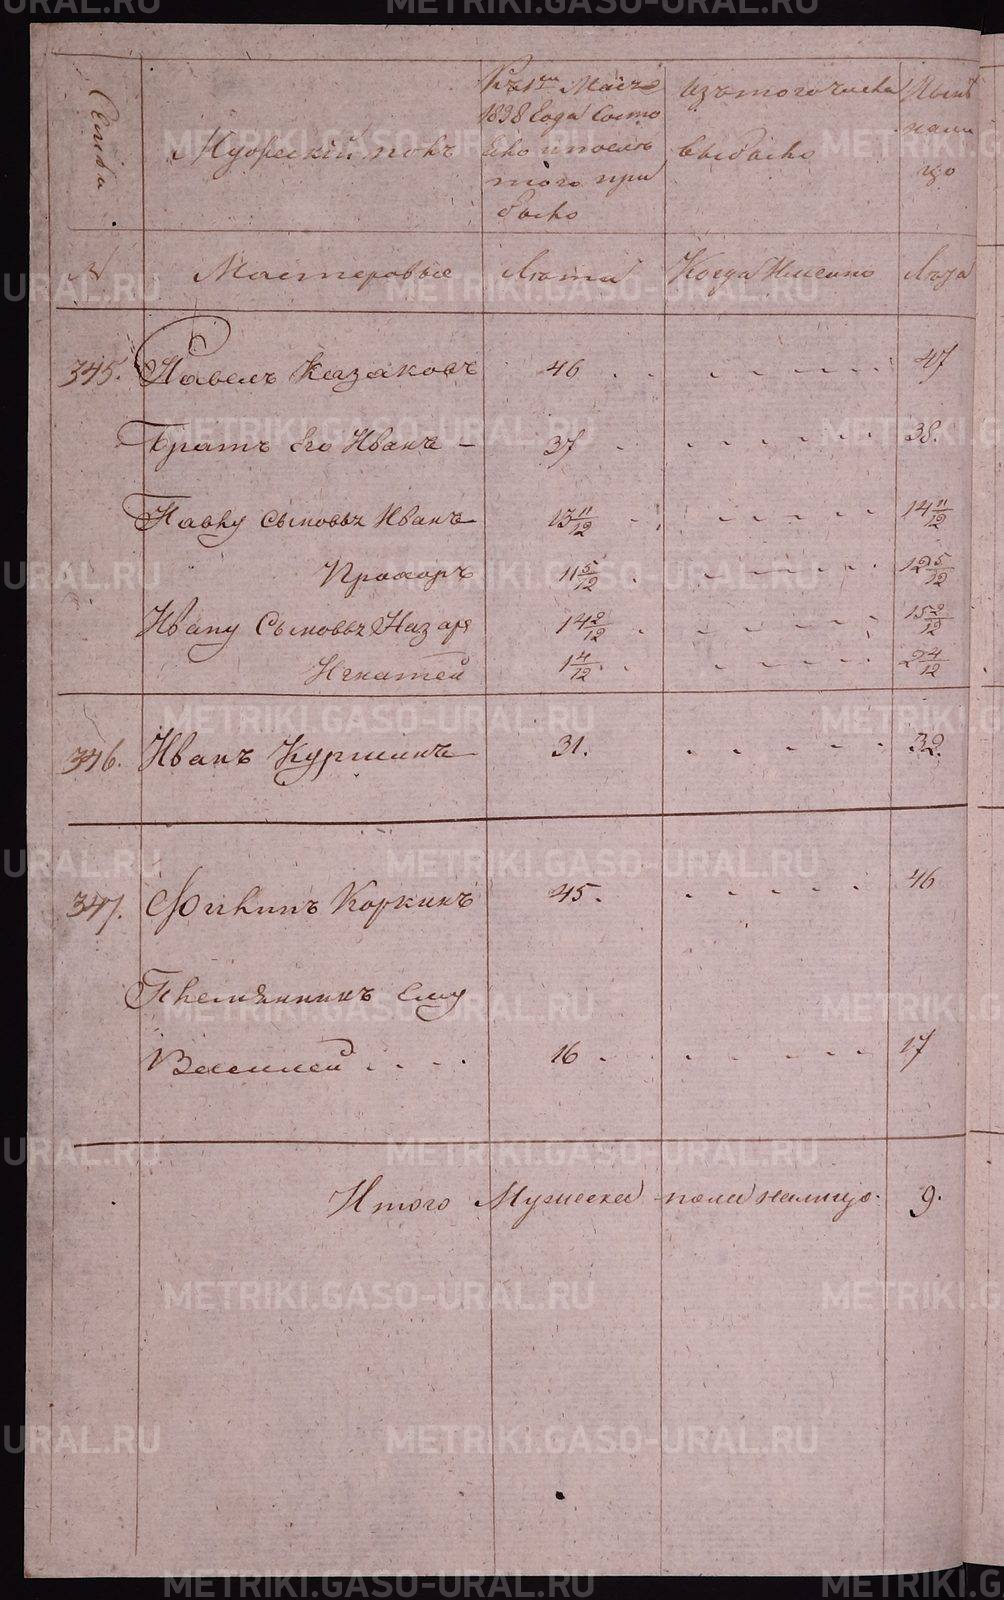 Семьи
Мужескій полъ
Къ 1му Маія
1838 Года Состо
яло и послѣ
того при
было
Изъ того числа
выбыло
Ныне
нали
цо
№ Мастеровые Лѣта Когда Именно Лѣта
345. Павелъ Казаковъ 46 47
Братъ Его Иванъ 37 38.
Павлу Сыновья Иванъ 13 11/12 14 11/12
Прохоръ 11 5/12 12 5/12
Ивану Сыновья Назаръ 14 2/12 15 2/12
Игнатей 1 4/12 2 4/12
346. Иванъ Куршинъ 31. 32.
347. Филипъ Коркинъ 45. 46
Племянникъ Ему
Василей 16 17
Итого Мужеска пола налицо. 9.
METRIKI.GASO-URAL.RU